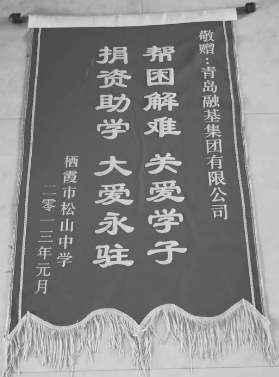 敬赠：青岛融基集团有限公司
帮困解难 关爱学子
捐资助学 大爱永驻
栖霞市松山中学
二零一三年元月